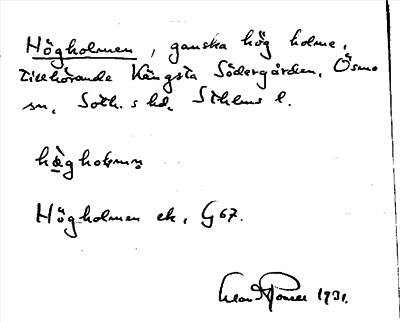 Högholmen, ganska hög holme,
tillhörande Kängsta Södergården, Ösmo
sn, Soth. s hd. Sthlms l.
högholmen
Högholmen ek. G 67.
1931.